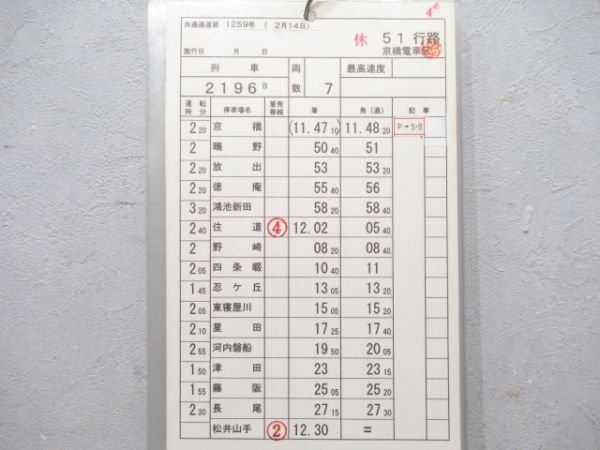 共通通達第 1259号 ( 2月14日)
4
休 51 行路
施行日 月 日
京橋電車区
列車 両数 最高速度
2196B 7
運転時分 停車場名 着発番線 着 発(通) 記事
2 20 京橋 (11.47 10) 11.48 20 P→S・B
2 鴫野 50 40 51
2 20 放出 53 53 20
2 20 徳庵 55 40 56
3 20 鴻池新田 58 20 58 40
2 40 住道 ④ 12.02 05 40
2 野崎 08 20 08 40
2 05 四条畷 10 40 11
1 45 忍ケ丘 13 05 13 20
2 05 東寝屋川 15 05 15 20
2 10 星田 17 25 17 40
2 55 河内磐船 19 50 20 05
1 50 津田 23 23 15
1 55 藤阪 25 05 25 20
2 30 長尾 27 15 27 30
松井山手 ② 12.30 =